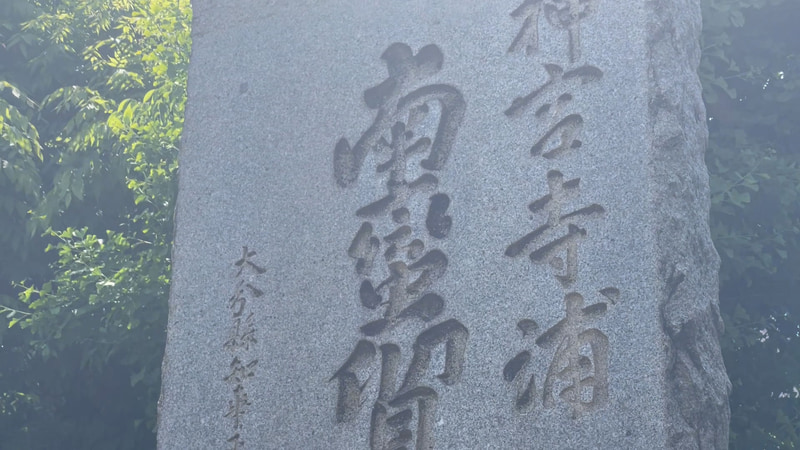 神宮寺浦
南蛮貿
大分縣知事